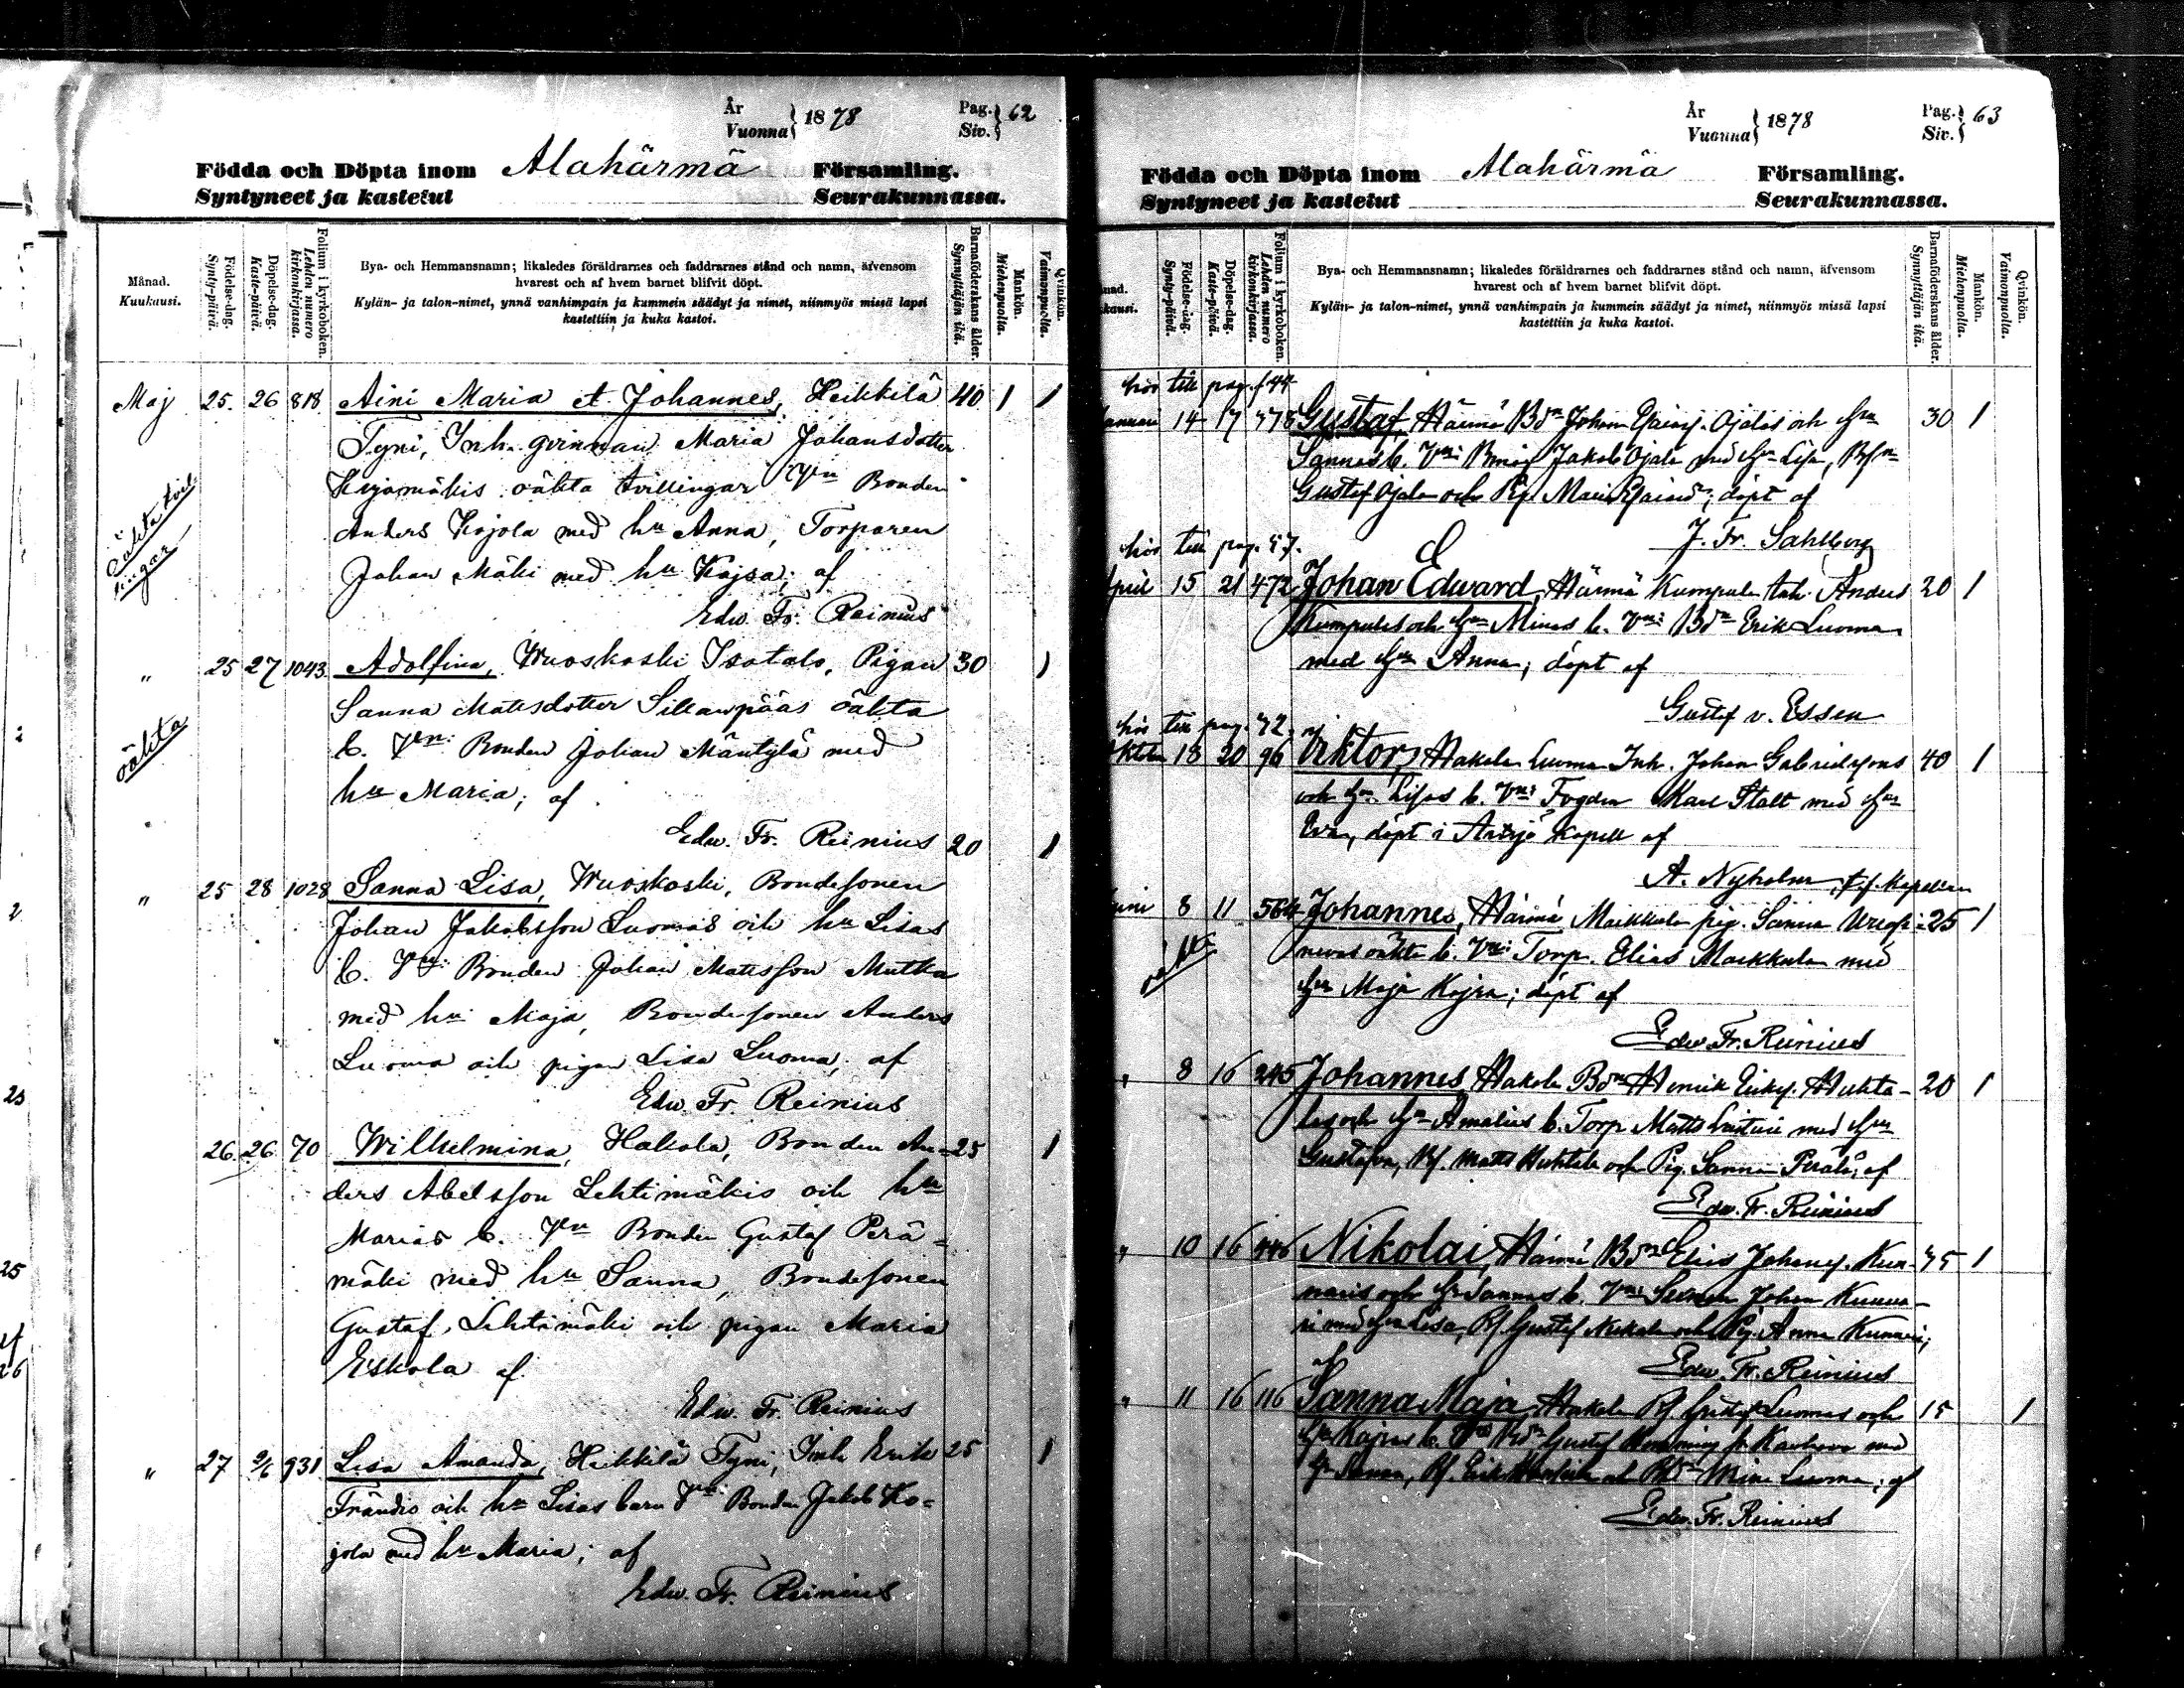 År
Vuonna } 1878
Pag.
Siv. } 62
Födda och Döpta inom Alahärmä Församling.
Syntyneet ja kastetut Seurakunnassa.
Månad.
Kuukausi.
Födelse-dag.
Synty-päivä.
Döpelse-dag.
Kaste-päivä.
Folium i kyrkoboken.
Lehden numero kirkonkirjassa.
Bya- och Hemmansnamn; likaledes föräldrarnes och faddrarnes stånd och namn, äfvensom
hvarest och af hvem barnet blifvit döpt.
Kylän- ja talon-nimet, ynnä vanhimpain ja kummein säädyt ja nimet, niinmyös missä lapsi
kastettiin ja kuka kastoi.
Barnaföderskans ålder.
Synnyttäjän ikä.
Mankön.
Miehenpuolia.
Qvinkön.
Vaimonpuolia.
Maj 25. 26 818 Aini Maria et Johannes, Heikkilä 40 1 1
Tyni, Inh. qvinnan Maria Johansdotter
oäkta tvillingar Vn Bonden
Anders Kojola med hu Anna, Torparen
Johan Mäki med hu Kajsa; af
Edw. Fr. Reinius
oäkta tvil
lingar
" 25 27 1043 Adolfina, Wuoskoski Isotalo, Pigan 30 1
Sanna Mattsdotter Sillanpääs oäkta
b. Vn: Bonden Johan Mäntylä med
hu Maria; af
oäkta
Edw. Fr. Reinius 20 1
" 25 28 1028 Sanna Lisa, Wuoskoski, Bondesonen
Johan Jakobsson Luomas och hu Lisas
b. Vn: Bonden Johan Matsson Mutka
med hu Maja, Bondesonen Anders
Luoma och pigan Lisa Luoma; af
Edw. Fr. Reinius
26. 26 70 Wilhelmina, Hakola, Bonden An= 25 1
ders Abelsson Lehtimäkis och hu
Marias b. Vn Bonden Gustaf Perä=
mäki med hu Sanna, Bondesonen
Gustaf Lehtimäki och pigan Maria
Eskola af
Edw. Fr. Reinius
" 27 2/6 931 Lisa Amanda, Heikkilä Tyni, Inh Erik 25 1
och hu Lisas barn Vn: Bonden Jakob Ko=
jola med hu Maria; af
Edw. Fr. Reinius
År
Vuonna } 1878
Pag.
Siv. } 63
Födda och Döpta inom Alahärmä Församling.
Syntyneet ja kastetut Seurakunnassa.
Födelse-dag.
Synty-päivä.
Döpelse-dag.
Kaste-päivä.
Folium i kyrkoboken.
Lehden numero kirkonkirjassa.
Bya- och Hemmansnamn; likaledes föräldrarnes och faddrarnes stånd och namn, äfvensom
hvarest och af hvem barnet blifvit döpt.
Kylän- ja talon-nimet, ynnä vanhimpain ja kummein säädyt ja nimet, niinmyös missä lapsi
kastettiin ja kuka kastoi.
Barnaföderskans ålder.
Synnyttäjän ikä.
Mankön.
Miehenpuolia.
Qvinkön.
Vaimonpuolia.
hör till pag. 44
januari 14 17 Gustaf, Härmä Bdn Johan Ojalas och hu 30 1
Sannas b. Vn: Jakob Ojala med hu Lisa,
Gustaf Ojala och Pig. Maria; döpt af
J. Fr. Sahlberg
hör till pag. 57.
april 15 21 472 Johan Edward, Härmä Kumpula Inh. Anders 20 1
Kumpulas och hu Minas b. Vn: Bdn Erik Luoma
med hu Anna; döpt af
Gustaf v. Essen
hör till pag. 42.
18 20 96 Viktor, Hakola Luoma Inh. Johan Gabrielssons 40 1
och hu Lisas b. Vn: Fogden Karl Stolt med hu
Eva, döpt i Artsjö Kapell af
A. Nyholm, t.f. Kapellan
8 11 564 Johannes, Härmä Markkula pig. Sanna 25 1
oäkta b. Vn: Torp. Elias Markkula med
hu Maja Kajsa; döpt af
Edw. Fr. Reinius
" 8 16 245 Johannes, Hakola Bdn Henrik Eriks. Huhta- 20 1
las och hu Amalias b. Torp Matts med hu
Gustafva, Matts Huhtala och Pig. Sanna Perälä; af
Edw. Fr. Reinius
" 10 16 446 Nikolai, Härmä Bdn Elias Johans. Kun- 1
naris och hu Sannas b. Vn: Johan Kunna-
ri med hu Lisa, Gustaf och Pig. Anna Kunnari;
af Edw. Fr. Reinius
" 11 16 116 Sanna Maja, Hakola Luomas och 15 1
hu Kajsas b. Vn Bdn Gustaf fr. Kauhava med
hu Sanna, Erik och Mina Luoma; af
Edw. Fr. Reinius